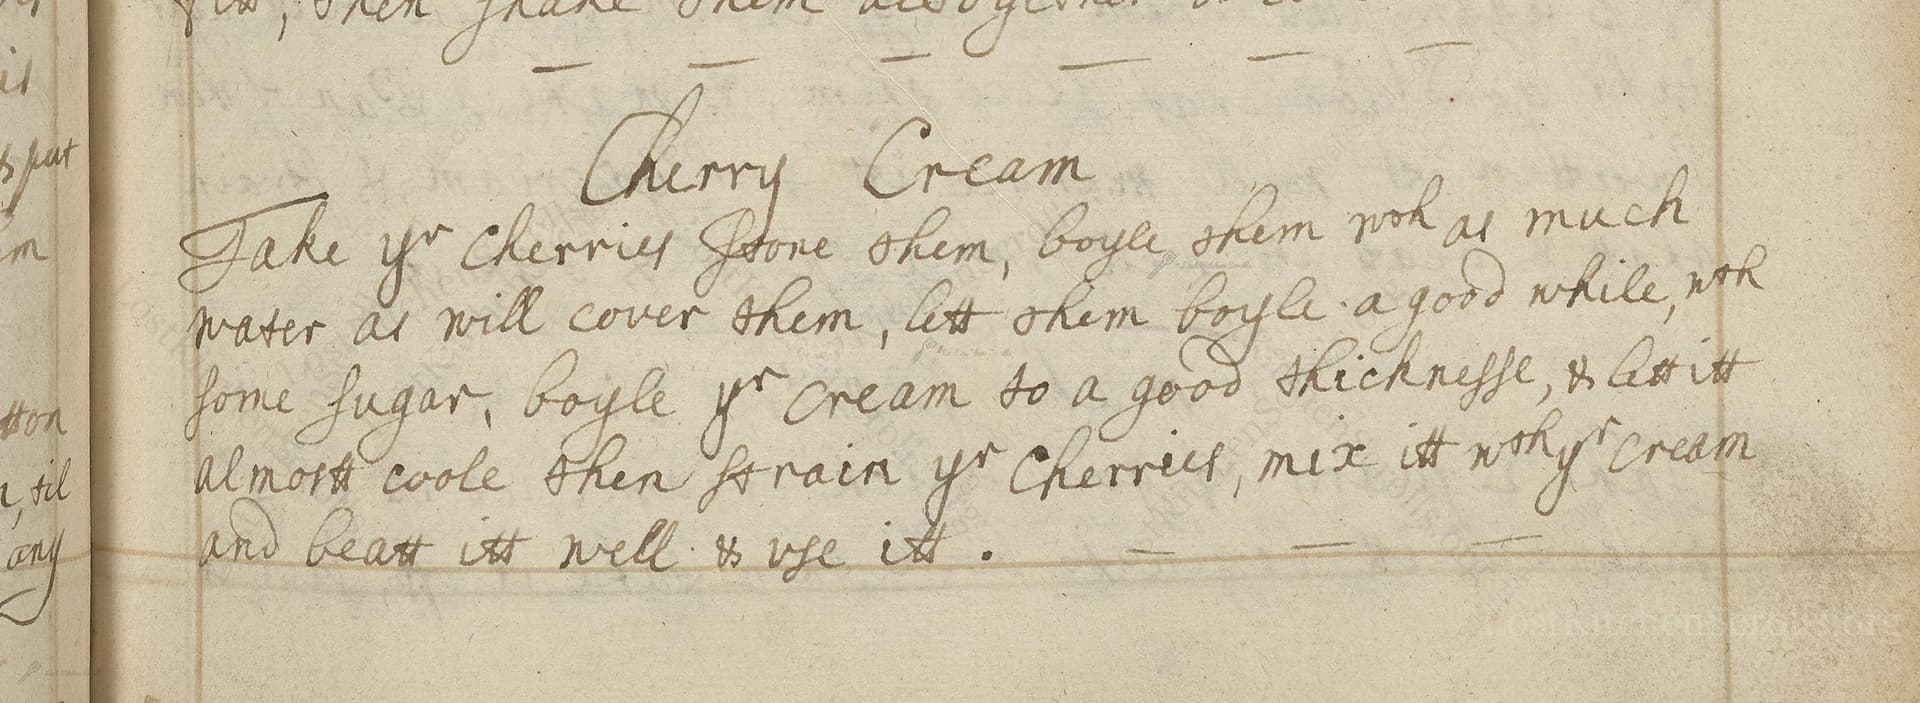 then shake them altogether
Cherry Cream
Take yr Cherries stone them, boyle them wth as much
water as will cover them, lett them boyle a good while, wth
some sugar, boyle yr cream to a good thicknesse, & lett itt
almostt coole then strain yr Cherries, mix itt wth yr cream
and beatt itt well & use itt.
is
& put
tton
til
any
LostKitchenScrolls.org